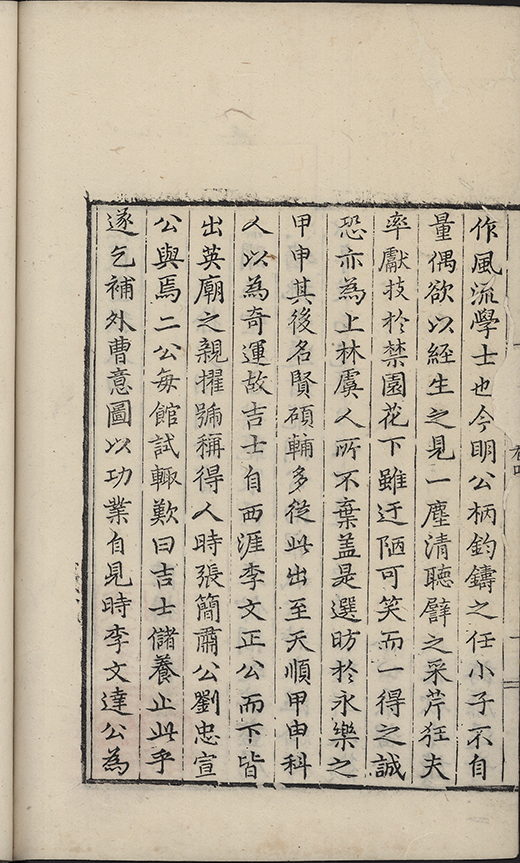 作風流學士也今明公柄鈞鑄之任小子不自
量偶欲以経生之見一塵清聽譬之采芹狂夫
率獻技於禁園花下雖迂陋可笑而一得之誠
恐亦為上林虞人所不棄盖是選昉於永樂之
甲申其後名賢碩輔多從此出至天順甲申科
人以為奇運故吉士自西涯李文正公而下皆
出英廟之親擢號稱得人時張簡肅公劉忠宣
公與焉二公每館試輒歎曰吉士儲養止此乎
遂乞補外曹意圖以功業自見時李文達公為